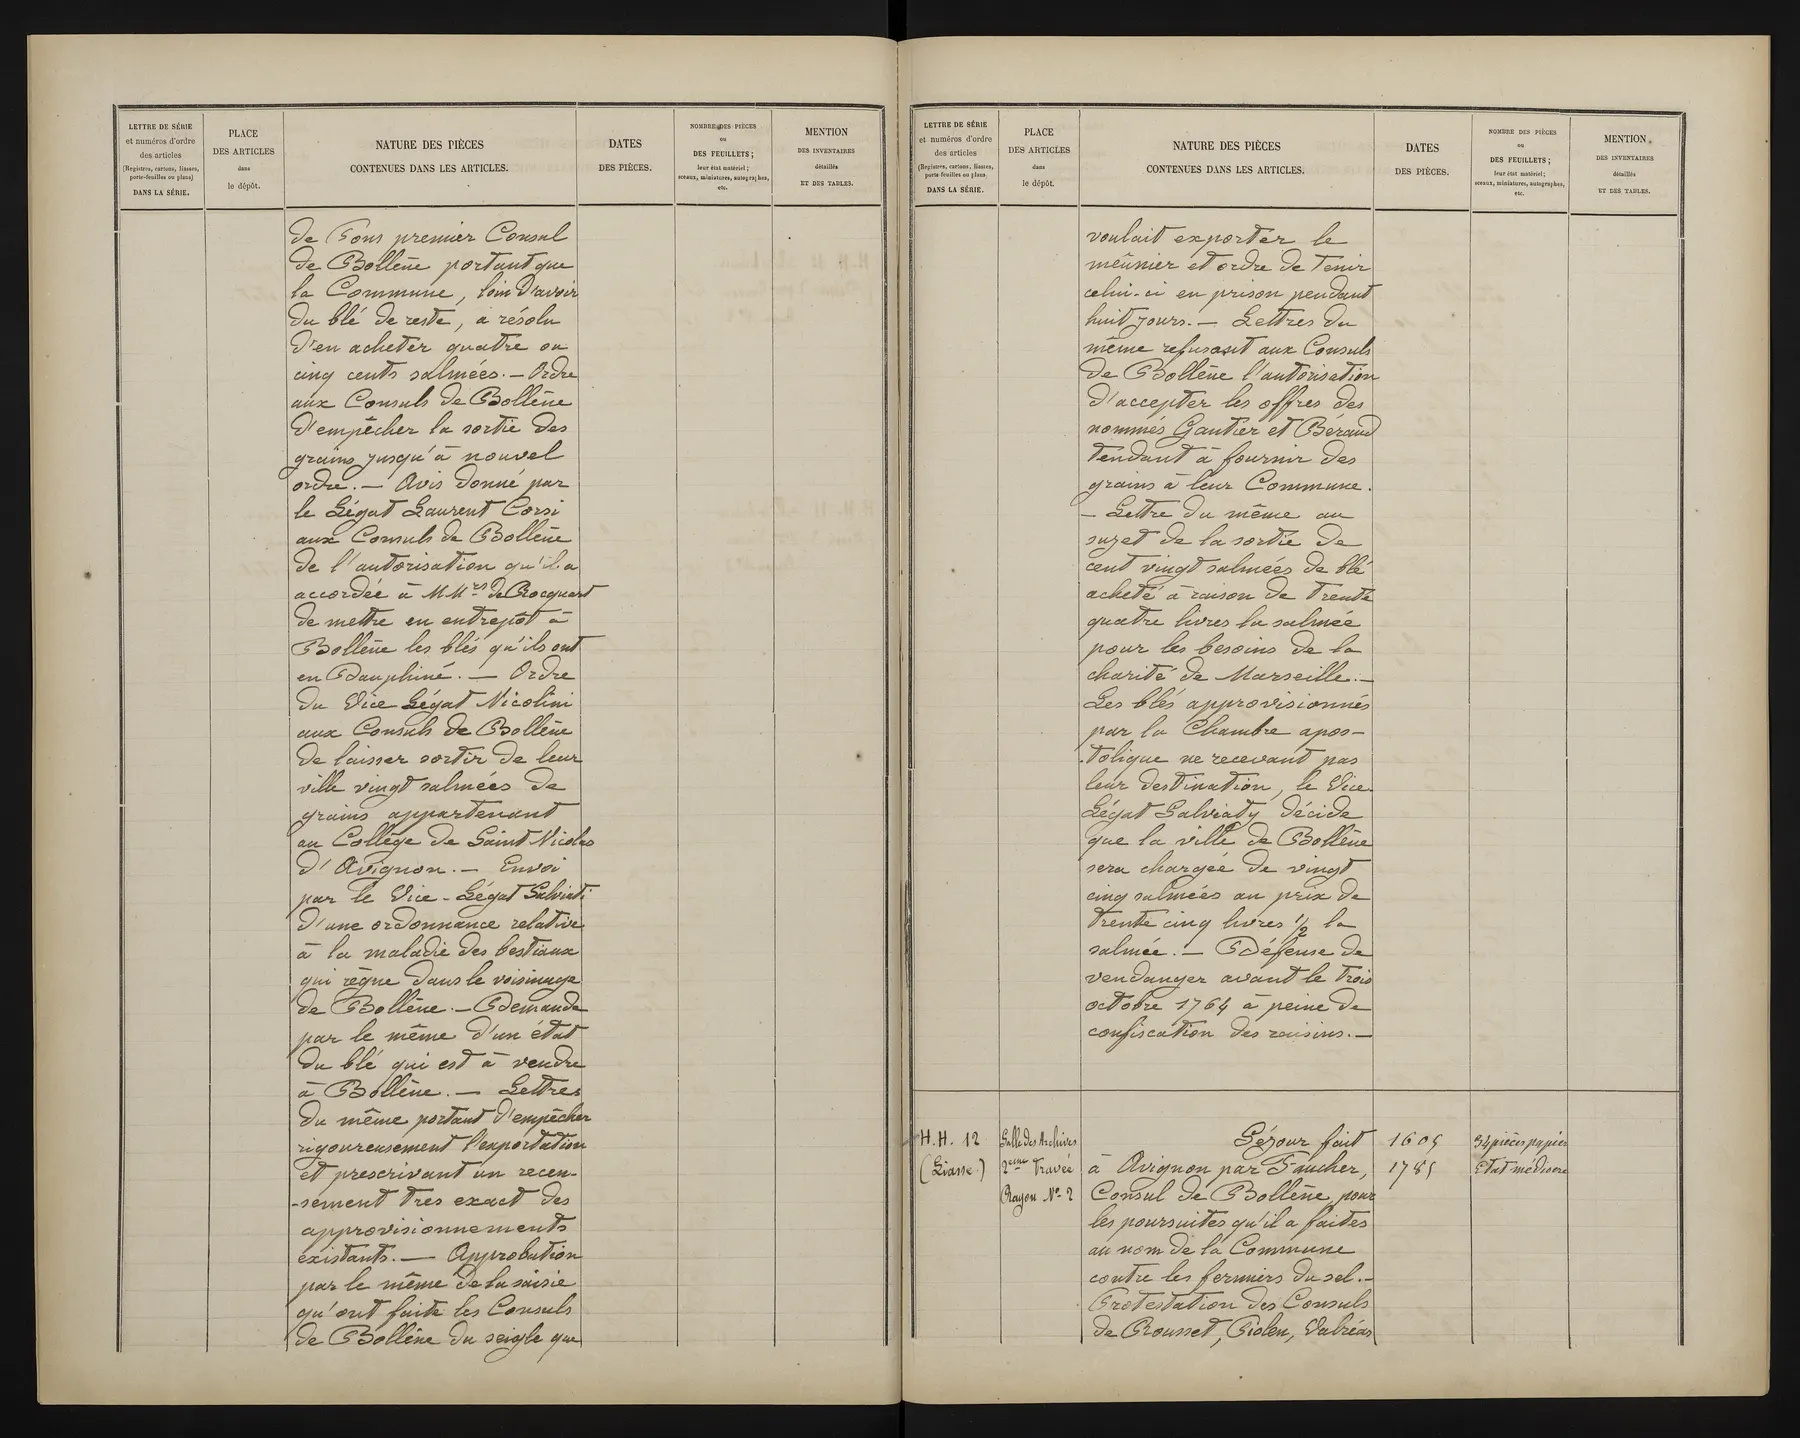 LETTRE DE SÉRIE
et numéros d'ordre
des articles
(Registres, cartons, liasses,
porte-feuilles ou plans)
DANS LA SÉRIE.
PLACE
DES ARTICLES
dans
le dépôt.
NATURE DES PIÈCES
CONTENUES DANS LES ARTICLES.
DATES
DES PIÈCES.
NOMBRE DES PIÈCES
ou
DES FEUILLETS;
leur état matériel;
sceaux, miniatures, autographes,
etc.
MENTION
DES INVENTAIRES
détaillés
ET DES TABLES.
de Fons premier Consul
de Bollène portant que
la Commune, loin d'avoir
du blé de reste, a résolu
d'en acheter quatre ou
cinq cents salmées. — Ordre
aux Consuls de Bollène
d'empêcher la sortie des
grains jusqu'à nouvel
ordre. — Avis donné par
le Légat Laurent Corsi
aux Consuls de Bollène
de l'autorisation qu'il a
accordée à MMrs de Rocquart
de mettre en entrepôt à
Bollène les blés qu'ils ont
en Dauphiné. — Ordre
du Vice Légat Nicolini
aux Consuls de Bollène
de laisser sortir de leur
ville vingt salmées de
grains appartenant
au Collège de Saint Nicolas
d'Avignon. — Envoi
par le Vice-Légat Salviati
d'une ordonnance relative
à la maladie des bestiaux
qui règne dans le voisinage
de Bollène. — Demande
par le même d'un état
du blé qui est à vendre
à Bollène. — Lettres
du même portant d'empêcher
rigoureusement l'exportation
et prescrivant un recen-
-sement très exact des
approvisionnements
existants. — Approbation
par le même de la saisie
qu'ont faite les Consuls
de Bollène du seigle que
LETTRE DE SÉRIE
et numéros d'ordre
des articles
(Registres, cartons, liasses,
porte-feuilles ou plans)
DANS LA SÉRIE.
PLACE
DES ARTICLES
dans
le dépôt.
NATURE DES PIÈCES
CONTENUES DANS LES ARTICLES.
DATES
DES PIÈCES.
NOMBRE DES PIÈCES
ou
DES FEUILLETS;
leur état matériel;
sceaux, miniatures, autographes,
etc.
MENTION
DES INVENTAIRES
détaillés
ET DES TABLES.
voulait exporter le
meûnier et ordre de tenir
celui-ci en prison pendant
huit jours. — Lettres du
même refusant aux Consuls
de Bollène l'autorisation
d'accepter les offres des
nommés Gautier et Béraud
tendant à fournir des
grains à leur Commune.
— Lettre du même au
sujet de la sortie de
cent vingt salmées de blé
acheté à raison de trente
quatre livres la salmée
pour les besoins de la
charité de Marseille. —
Les blés approvisionnés
par la Chambre apos-
tolique ne recevant pas
leur destination, le Vice
Légat Salviaty décide
que la ville de Bollène
sera chargée de vingt
cinq salmées au prix de
trente cinq livres 1/2 la
salmée. — Défense de
vendanger avant le trois
octobre 1764 à peine de
confiscation des raisins. —
H.H. 12
(Liasse)
Salle des Archives
2eme Travée
Rayon No 2
Séjour fait
à Avignon par Faucher,
Consul de Bollène, pour
les poursuites qu'il a faites
au nom de la Commune
contre les fermiers du sel. —
Protestation des Consuls
de Rousset, Piolen, Valréas
1605
1785
34 pièces papier
Etat médiocre